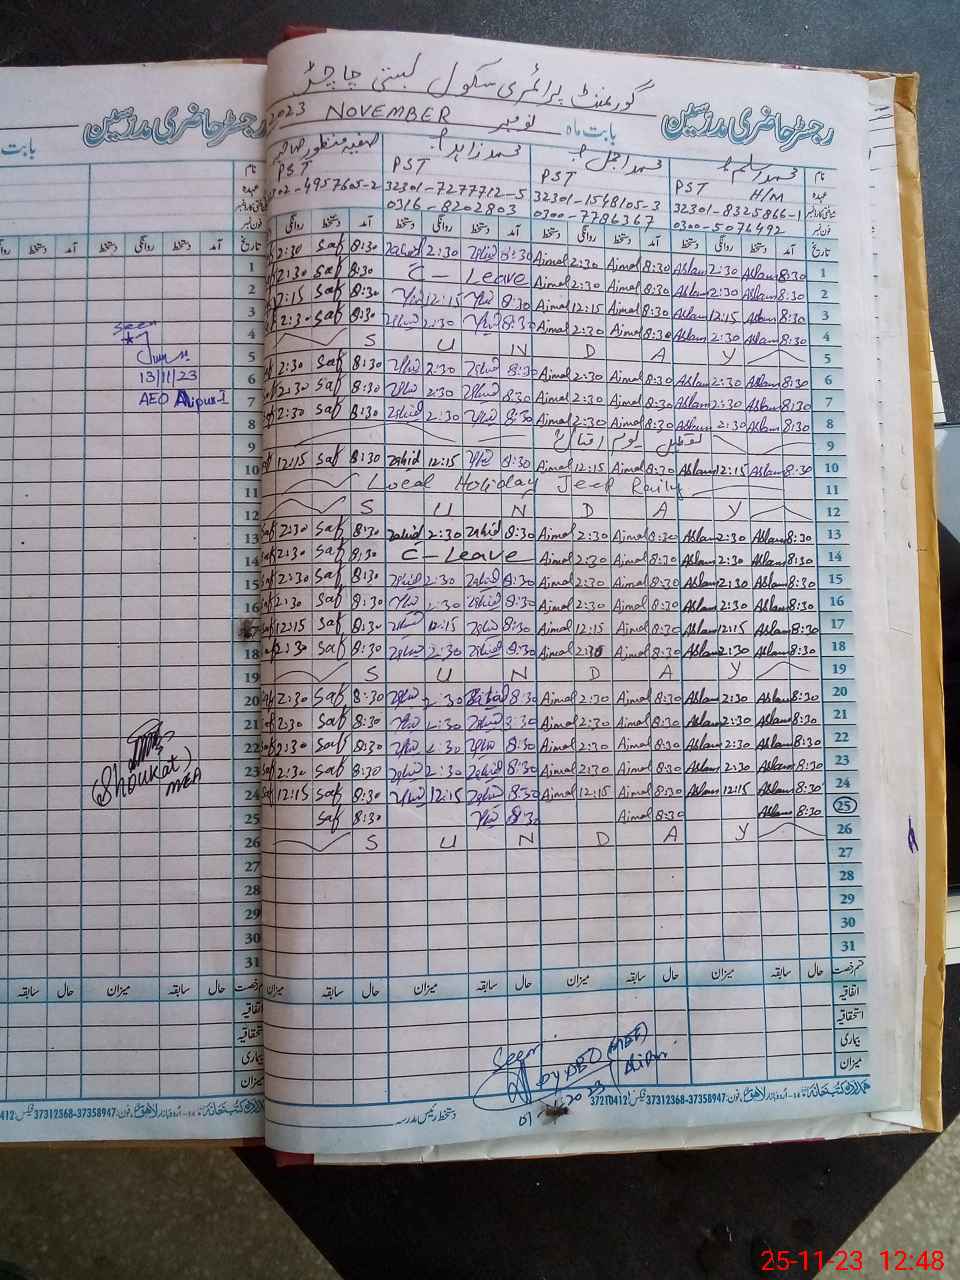 گورنمنٹ پرائمری سکول بستی چاچڑ
رجسٹر حاضری مدرسین
بابت ماہ نومبر NOVEMBER 2023
نام محمد اسلم محمد اجمل محمد زاہد صفیہ منظور صاحبہ
عہدہ H/M PST PST PST PST
32301-8325866-1 32301-1548105-3 32301-7277712-5 302-4957605-2
فون نمبر 0300-5076492 0300-7786367 0316-8202803
تاریخ آمد دستخط روانگی آمد دستخط روانگی آمد دستخط روانگی آمد دستخط روانگی
1 8:30 Aslam 2:30 Aslam 8:30 Ajmal 2:30 Ajmal 8:30 Zahid 2:30 Zahid 8:30 Saf 2:30
2 8:30 Aslam 2:30 Aslam 8:30 Ajmal 2:30 Ajmal C - Leave 8:30 Saf 2:30
3 8:30 Aslam 12:15 Aslam 8:30 Ajmal 12:15 Ajmal 8:30 Zahid 12:15 Zahid 8:30 Saf 12:15
4 8:30 Aslam 2:30 Aslam 8:30 Ajmal 2:30 Ajmal 8:30 Zahid 2:30 Zahid 8:30 Saf 2:30
5 S U N D A Y
6 8:30 Aslam 2:30 Aslam 8:30 Ajmal 2:30 Ajmal 8:30 Zahid 2:30 Zahid 8:30 Saf 2:30
7 8:30 Aslam 2:30 Aslam 8:30 Ajmal 2:30 Ajmal 8:30 Zahid 2:30 Zahid 8:30 Saf 2:30
8 8:30 Aslam 2:30 Aslam 8:30 Ajmal 2:30 Ajmal 8:30 Zahid 2:30 Zahid 8:30 Saf 2:30
9 تعطیل یوم اقبال
10 8:30 Aslam 12:15 Aslam 8:30 Ajmal 12:15 Ajmal 8:30 Zahid 12:15 Zahid 8:30 Saf 12:15
11 Local Holiday Jeep Raily
12 S U N D A Y
13 8:30 Aslam 2:30 Aslam 8:30 Ajmal 2:30 Ajmal 8:30 Zahid 2:30 Zahid 8:30 Saf 2:30 Saf
14 8:30 Aslam 2:30 Aslam 8:30 Ajmal 2:30 Ajmal C - Leave 8:30 Saf 2:30 Saf
15 8:30 Aslam 2:30 Aslam 8:30 Ajmal 2:30 Ajmal 8:30 Zahid 2:30 Zahid 8:30 Saf 2:30 Saf
16 8:30 Aslam 2:30 Aslam 8:30 Ajmal 2:30 Ajmal 8:30 Zahid 2:30 Zahid 8:30 Saf 2:30
17 8:30 Aslam 12:15 Aslam 8:30 Ajmal 12:15 Ajmal 8:30 Zahid 12:15 Zahid 8:30 Saf 12:15
18 8:30 Aslam 2:30 Aslam 8:30 Ajmal 2:30 Ajmal 8:30 Zahid 2:30 Zahid 8:30 Saf 2:30
19 S U N D A Y
20 8:30 Aslam 2:30 Aslam 8:30 Ajmal 2:30 Ajmal 8:30 Zahid 2:30 Zahid 8:30 Saf 2:30
21 8:30 Aslam 2:30 Aslam 8:30 Ajmal 2:30 Ajmal 8:30 Zahid 2:30 Zahid 8:30 Saf 2:30
22 8:30 Aslam 2:30 Aslam 8:30 Ajmal 2:30 Ajmal 8:30 Zahid 2:30 Zahid 8:30 Saf 2:30
23 8:30 Aslam 2:30 Aslam 8:30 Ajmal 2:30 Ajmal 8:30 Zahid 2:30 Zahid 8:30 Saf 2:30
24 8:30 Aslam 12:15 Aslam 8:30 Ajmal 12:15 Ajmal 8:30 Zahid 12:15 Zahid 8:30 Saf 12:15
25 8:30 Aslam 8:30 Ajmal 8:30 Zahid 8:30 Saf
26 S U N D A Y
27
28
29
30
31
قسم رخصت حال سابقہ میزان حال سابقہ میزان حال سابقہ میزان حال سابقہ میزان
اتفاقیہ
استحقاقیہ
بیماری
میزان
Seen
Dy DEO (MEE)
دستخط رئیس مدرسہ
37312368-37358947 37210412
رجسٹر حاضری مدرسین
بابت
نام
عہدہ
فون نمبر
تاریخ آمد دستخط روانگی آمد دستخط
1
2
3
4
5
6
7
8
9
10
11
12
13
14
15
16
18
19
20
21
22
23
24
25
26
27
28
29
30
31
Seen
13/11/23
AEO Alipur-I
(Shoukat)
MEA
قسم رخصت حال سابقہ میزان حال سابقہ
اتفاقیہ
استحقاقیہ
بیماری
میزان
37312368-37358947
25-11-23 12:48